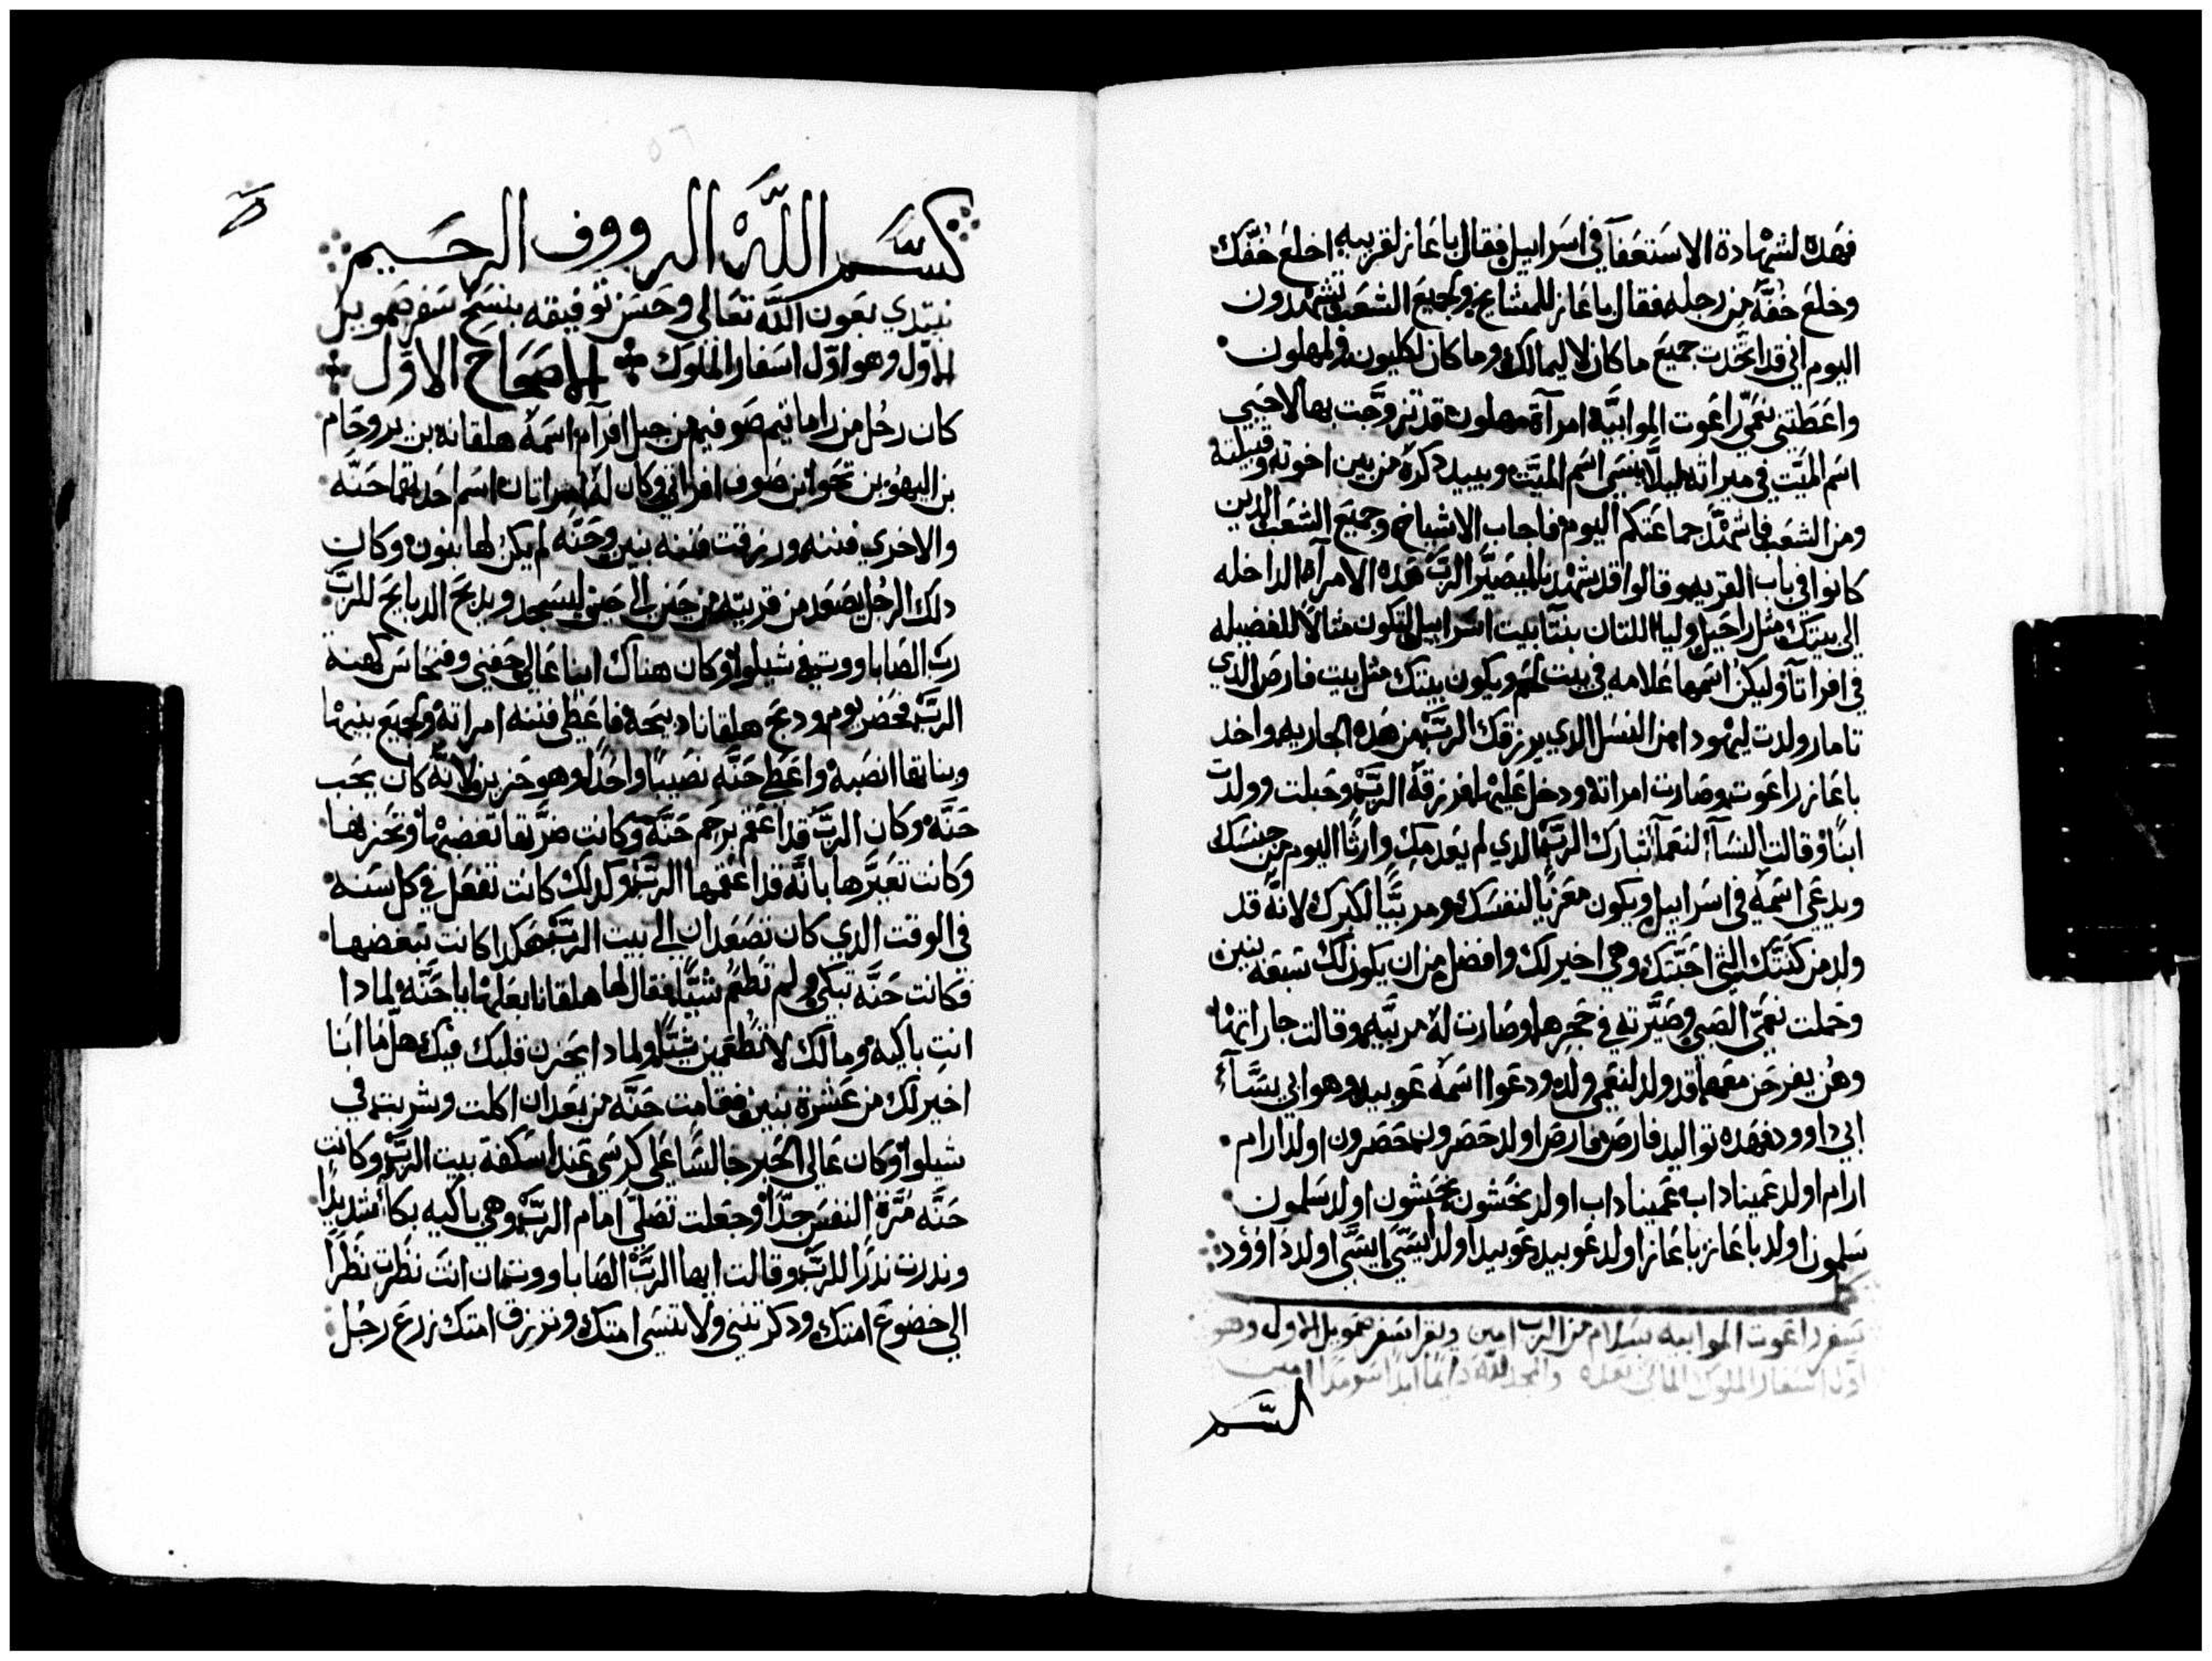 فهده لشهادة الاستعفآ في اسراييل فقال باعاز لقريبه اخلع خفّك
وخلع خفّه من رجله فقال باعاز للمشايخ ولجميع الشعب تشهدون
اليوم اني قد اتخدت جميع ما كان لاليمالك وما كان لكليون ولمهلون
واعطتني نعمّي راعوت الموابيّه امرآة مهلون قد تزوّجت بها لاحيي
اسم الميّت في ميراثه ليلّا ينسي اسم الميّت ويبيد دكره من بين اخوته وقبيلته
ومن الشعب فاشهّد جماعتكم اليوم فاجاب الاشياخ وجميع الشعب الدين
كانوا في باب القريه وقالوا قد شهدنا ليصيّر الربّ هده الامرآة الداخله
الي بيتك مثل راحيل وليا اللتان بنتا بيت اسراييل لتكون مثالاً للفضيله
في افراتا وليكن اسمها علامه في بيت لحم ويكون بيتك مثل بيت فارص الدي
تامار ولدت ليهودا من النسل الدي يرزقك الربّ من هده الجاريه واخد
باعاز راعوت وصارت امراته ودخل عليها فرزقه الربّ وحبلت وولدت
ابنًا وقالت النسآ لنعما تبارك الربّ الدي لم يعدمك وارثًا اليوم من جنسك
ويدعي اسمه في اسراييل ويكون معزيًا لنفسك ومربيًّا لكبرك لانّه قد
ولد من كنّتك التي احبّتك وهي اخير لك وافضل من ان يكون لك سبعه بنين
وحملت نعمّي الصبي وصيّرته في حجرها وصارت له مربّيه وقالت جاراتها
وهُن يفرحن معها قد ولد لنعمي ولد ودعوا اسمه عوبيد وهو ابي يسّآ
ابي داوود فهده تواليد فارص فارص اولد حصرون حصرون اولد ارام
ارام اولد عميناداب عميناداب اولد نحشون نحشون اولد سلمون
سلمون اولد باعاز باعاز اولد عوبيد عوبيد اولد ايسّي ايسّي اولد داوود
سفر راعوت الموابيه بسلام من الرب امين ويقرا سفر صموييل الاول وهو
اوّل اسفار الملوك التاني بعده والمجد للّه دايمًا ابدًا سرمدًا امين
بسم الله الرووف الرحيم
نبتدي بعون اللّه تعالي وحسن توفيقه بنسخ سفر صموييل
الاوّل وهو اوّل اسفار الملوك الاصحاح الاوّل
كان رجُل من راماتيم صوفيم من جبل افرآم اسمه هلقانه بن يروحام
بن اليهو بن تحوا بن صوف افراتي وكان له امراتان اسم احديهما حنّه
والاخري فننه ورزقت فننه بنين وحنّه لم يكن لها بنون وكان
دلك الرجُل يصعد من قريته من حين الي حين ليسجد ويدبح الدبايح للربّ
ربّ الصاباووت في شيلوا وكان هناك ابنا عالي حفني وفنحاس كهنه
الربّ فحضر يوم ودبح هلقانا دبيحه فاعطي فننه امراته ولجميع بنيها
وبناتها انصبه واعطي حنّه نصيبًا واحدًا وهو حزين لانّه كان يحب
حنّه وكان الربّ قد اعقم رحم حنّه وكانت ضرّتها تغضبها وتحزنها
وكانت تعيّرها بانّه قد اعقمها الربّ وكدلك كانت تفعل في كل سنه
في الوقت الدي كان تصعدان الي بيت الربّ هكدا كانت تبغضها
فكانت حنّه تبكي ولم تطعُم شيًّا فقال لها هلقانا بعلها يا حنّه لمادا
انتِ باكيه وما لك لا تطعمين شيًّا ولمادا يحزن قلبك فيك هل ما انا
اخير لك من عشرة بنين فقامت حنّه من بعد ان اكلت وشربت في
شيلوا وكان عالي الحبر جالسًا علي كرسي عند اسكفة بيت الربّ وكانت
حنّه مُرّة النفس جدًّا وجعلت تصلّي امام الربّ وهي باكيه بكاً شديدًا
وندرت ندرًا للربّ وقالت ايها الربّ الصاباووت ان انت نظرت نظرًا
الي خضوع امتك ودكرتني ولا تنسي امتك وترزق امتك زرع رجُل